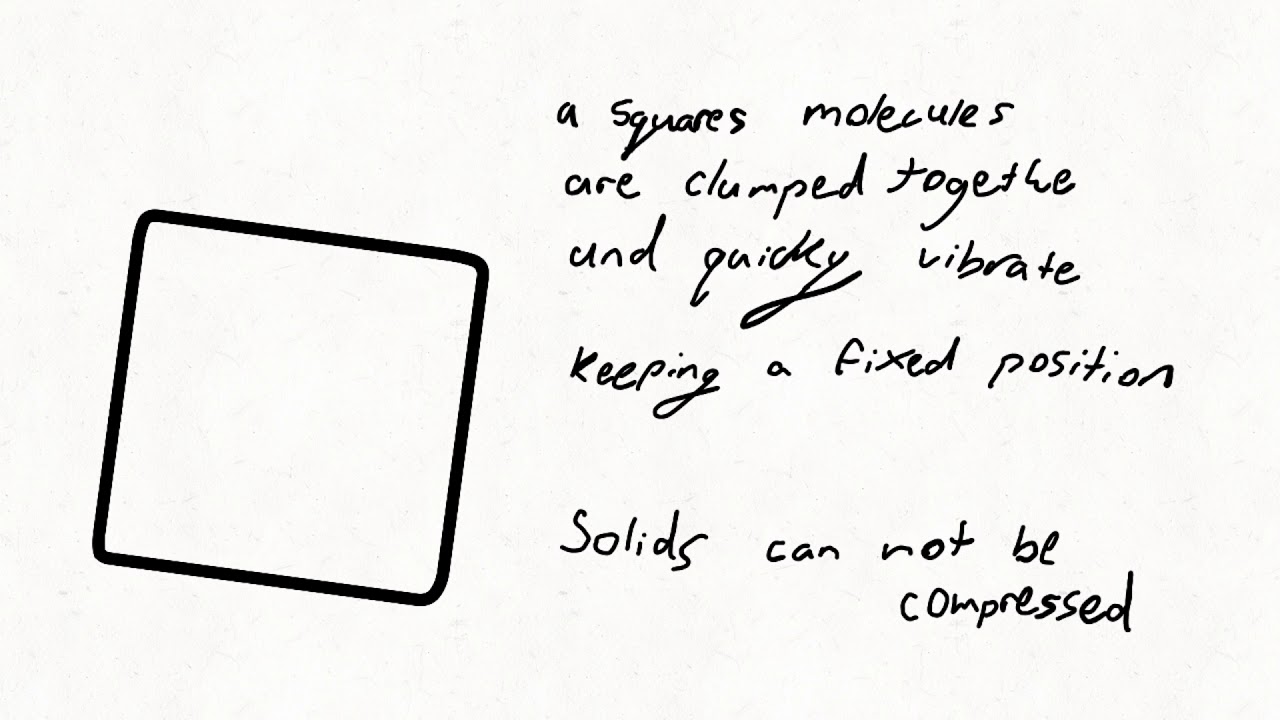 a squares molecules
are clumped togethe
and quicky vibrate
keeping a fixed position
Solids can not be
compressed